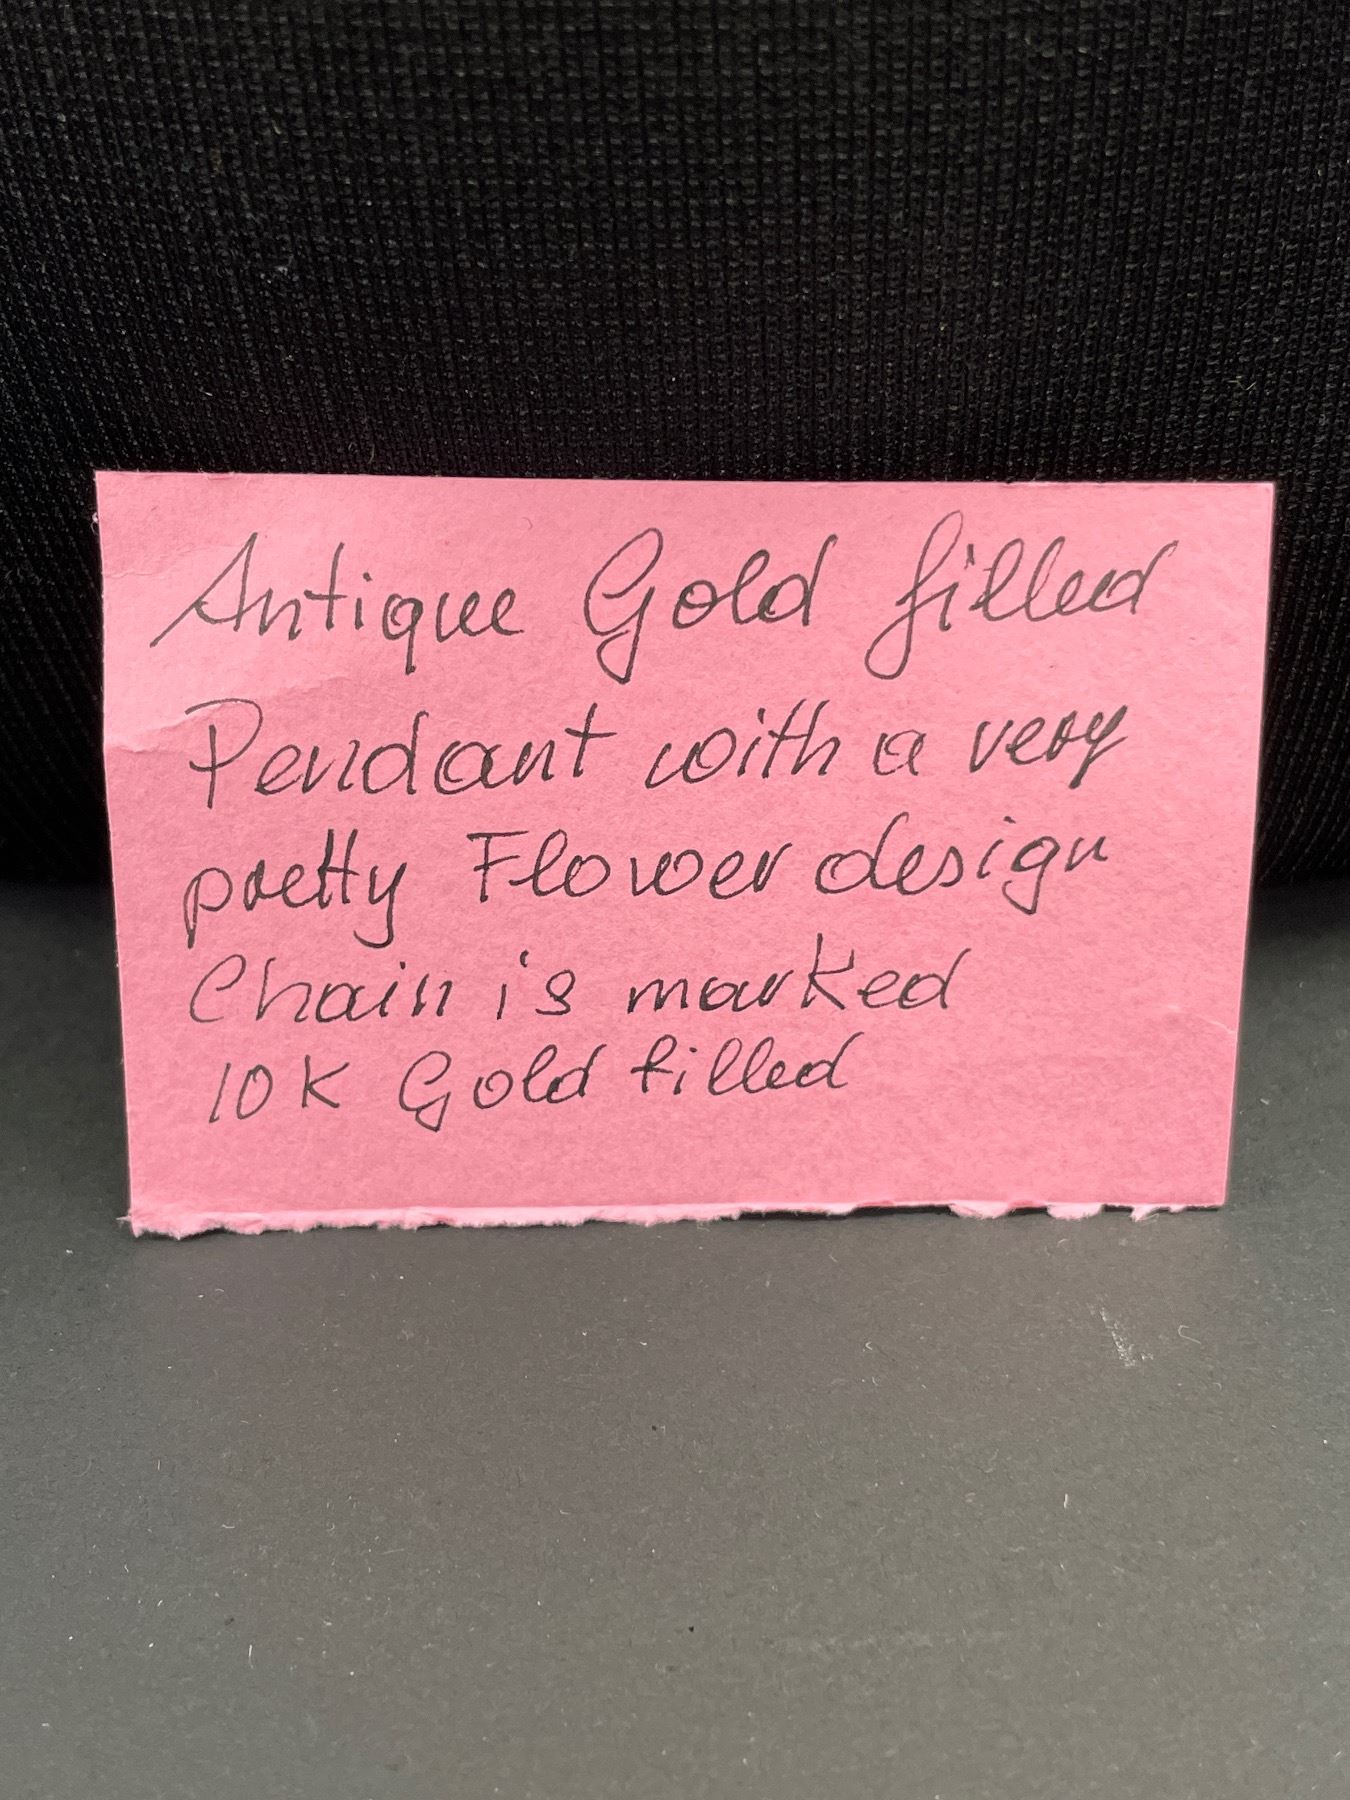 Antique Gold filled
Pendant with a very
pretty Flower design
Chain is marked
10K Gold filled